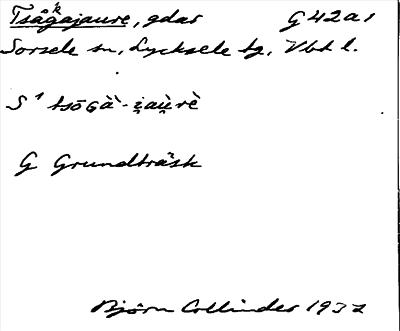 Tsågkajaure, gdar G 42 a 1
Sorsele sn, Lycksele tg, Vbt l.
S¹ tsōGà̀-i̯au̯rè
G Grundträsk
Björn Collinder 1937